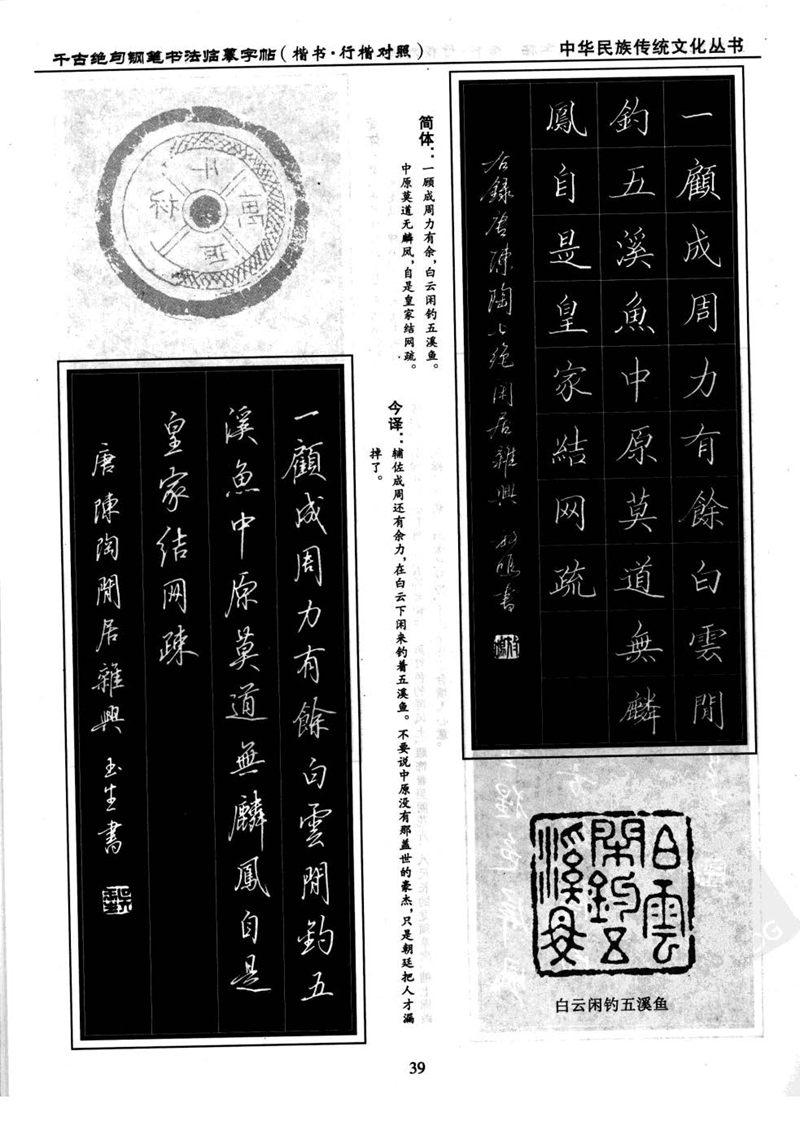 千古绝句钢笔书法临摹字帖(楷书·行楷对照)
中华民族传统文化丛书
一顧成周力有餘白雲閒
釣五溪魚中原莫道無麟
鳳自是皇家結网疏
右錄唐陳陶七绝閑居雜興
書
简体：一顾成周力有余，白云闲钓五溪鱼。
中原莫道无麟凤，自是皇家结网疏。
今译：辅佐成周还有余力，在白云下闲来钓着五溪鱼。不要说中原没有那盖世的豪杰，只是朝廷把人才漏
掉了。
一顧成周力有餘白雲閒釣五
溪魚中原莫道無麟鳳自是
皇家结网疎
唐陳陶閒居雜興 玉生書
白雲
閑釣五
溪魚
白云闲钓五溪鱼
39